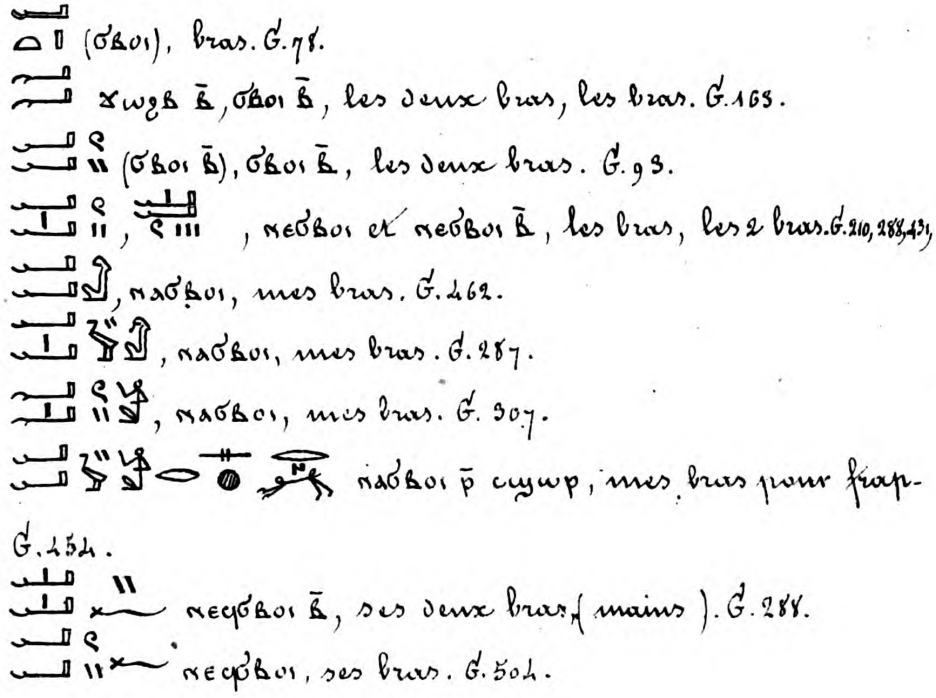 (ϭⲃⲟⲓ), bras. G. 78.
ϫⲱϩⲃ ⲃ̄, ϭⲃⲟⲓ ⲃ̄, les deux bras, les bras. G. 163.
(ϭⲃⲟⲓ ⲃ̄), ϭⲃⲟⲓ ⲃ̄, les deux bras. G. 93.
, ⲛⲉϭⲃⲟⲓ et ⲛⲉϭⲃⲟⲓ ⲃ̄, les bras, les 2 bras. G. 210, 288, 431,
, ⲛⲁϭⲃⲟⲓ, mes bras. G. 462.
, ⲛⲁϭⲃⲟⲓ, mes bras. G. 287.
, ⲛⲁϭⲃⲟⲓ, mes bras. G. 307.
ⲛⲁϭⲃⲟⲓ ⲣ̄ ⲥϣⲱⲣ, mes bras pour frap-
G. 454.
ⲛⲉϥϭⲃⲟⲓ ⲃ̄, ses deux bras, (mains). G. 288.
ⲛⲉϥϭⲃⲟⲓ, ses bras. G. 504.